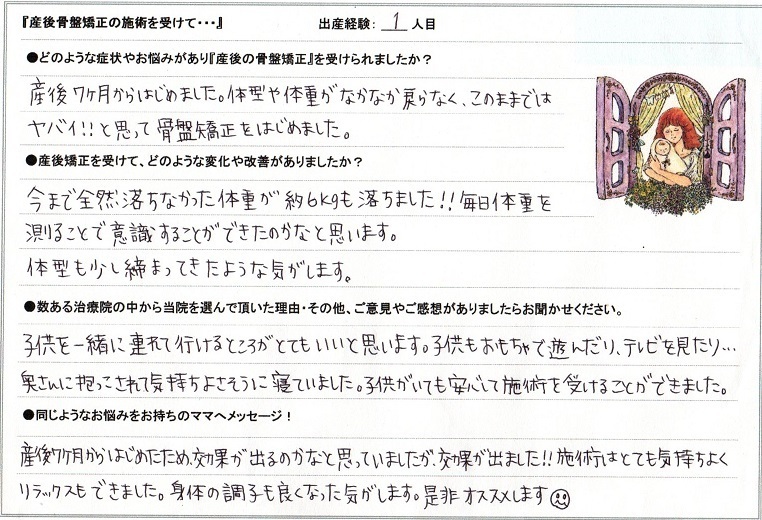 『産後骨盤矯正の施術を受けて・・・』 出産経験： 1 人目
●どのような症状やお悩みがあり『産後の骨盤矯正』を受けられましたか？
産後7ヶ月からはじめました。体型や体重がなかなか戻らなく、このままでは
ヤバイ!!と思って骨盤矯正をはじめました。
●産後矯正を受けて、どのような変化や改善がありましたか？
今まで全然落ちなかった体重が約6kgも落ちました!!毎日体重を
測ることで意識することができたのかなと思います。
体型も少し締まってきたような気がします。
●数ある治療院の中から当院を選んで頂いた理由・その他、ご意見やご感想がありましたらお聞かせください。
子供を一緒に連れて行けるところがとてもいいと思います。子供もおもちゃで遊んだり、テレビを見たり…
奥さんに抱っこされて気持ちよさそうに寝ていました。子供がいても安心して施術を受けることができました。
●同じようなお悩みをお持ちのママへメッセージ！
産後7ヶ月からはじめたため、効果が出るのかなと思っていましたが、効果が出ました!!施術はとても気持ちよく
リラックスもできました。身体の調子も良くなった気がします。是非オススメします